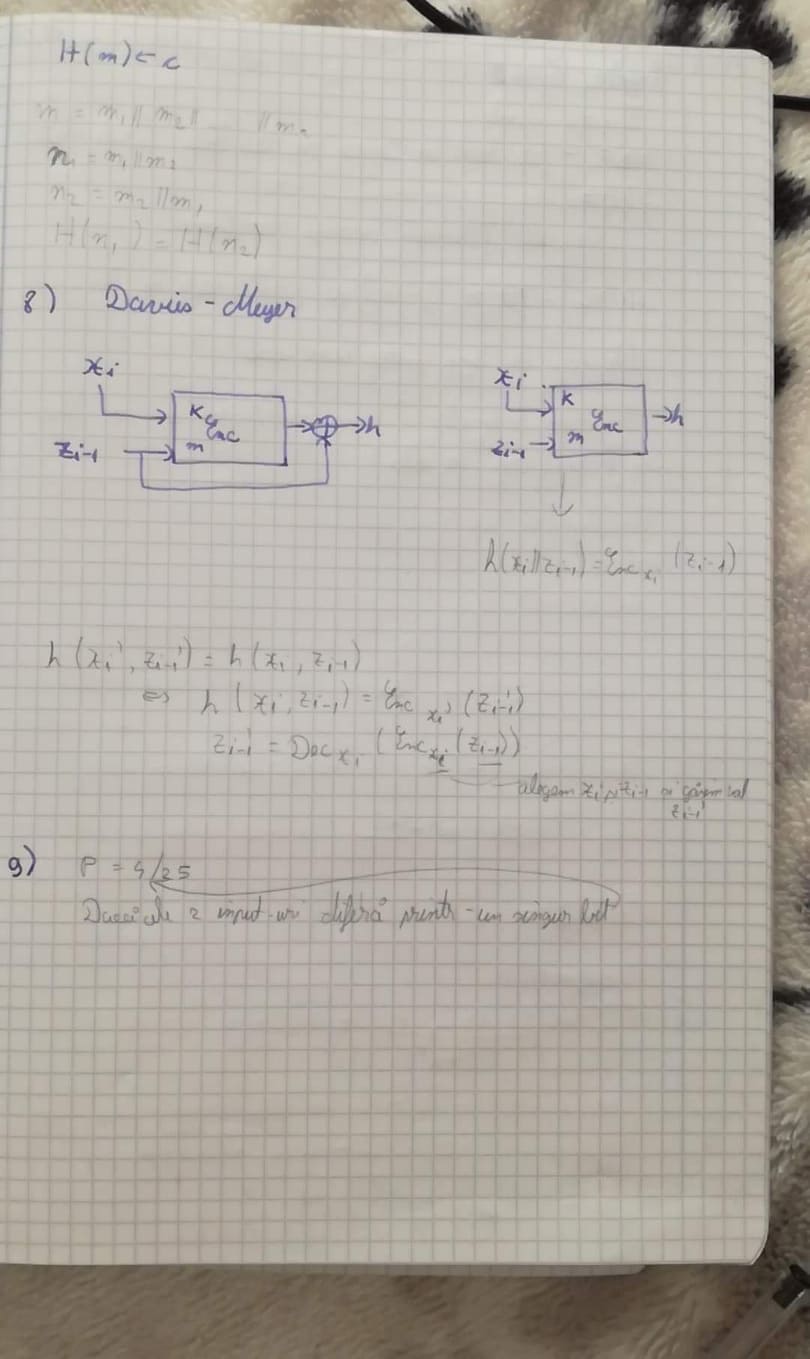 H(m) ← c
m = m₁ || m₂ || ... || mₙ
n₁ = m₁ || m₂
n₂ = m₂ || m₁
H(n₁) = H(n₂)
8) Davies - Meyer
xi
K Enc
m
zi-1
⊕ → h
xi
K Enc
m
zi-1
→ h
↓
h(xi || zi-1) = Enc xi (zi-1)
h (xi', zi-1') = h (xi, zi-1)
⇔ h (xi, zi-1) = Enc xi' (zi-1')
zi-1' = Dec xi' (Enc xi (zi-1))
alegem xi, zi-1 si găsim
zi-1'
9) P = 4/25
Dacă cele 2 input-uri diferă printr-un singur bit